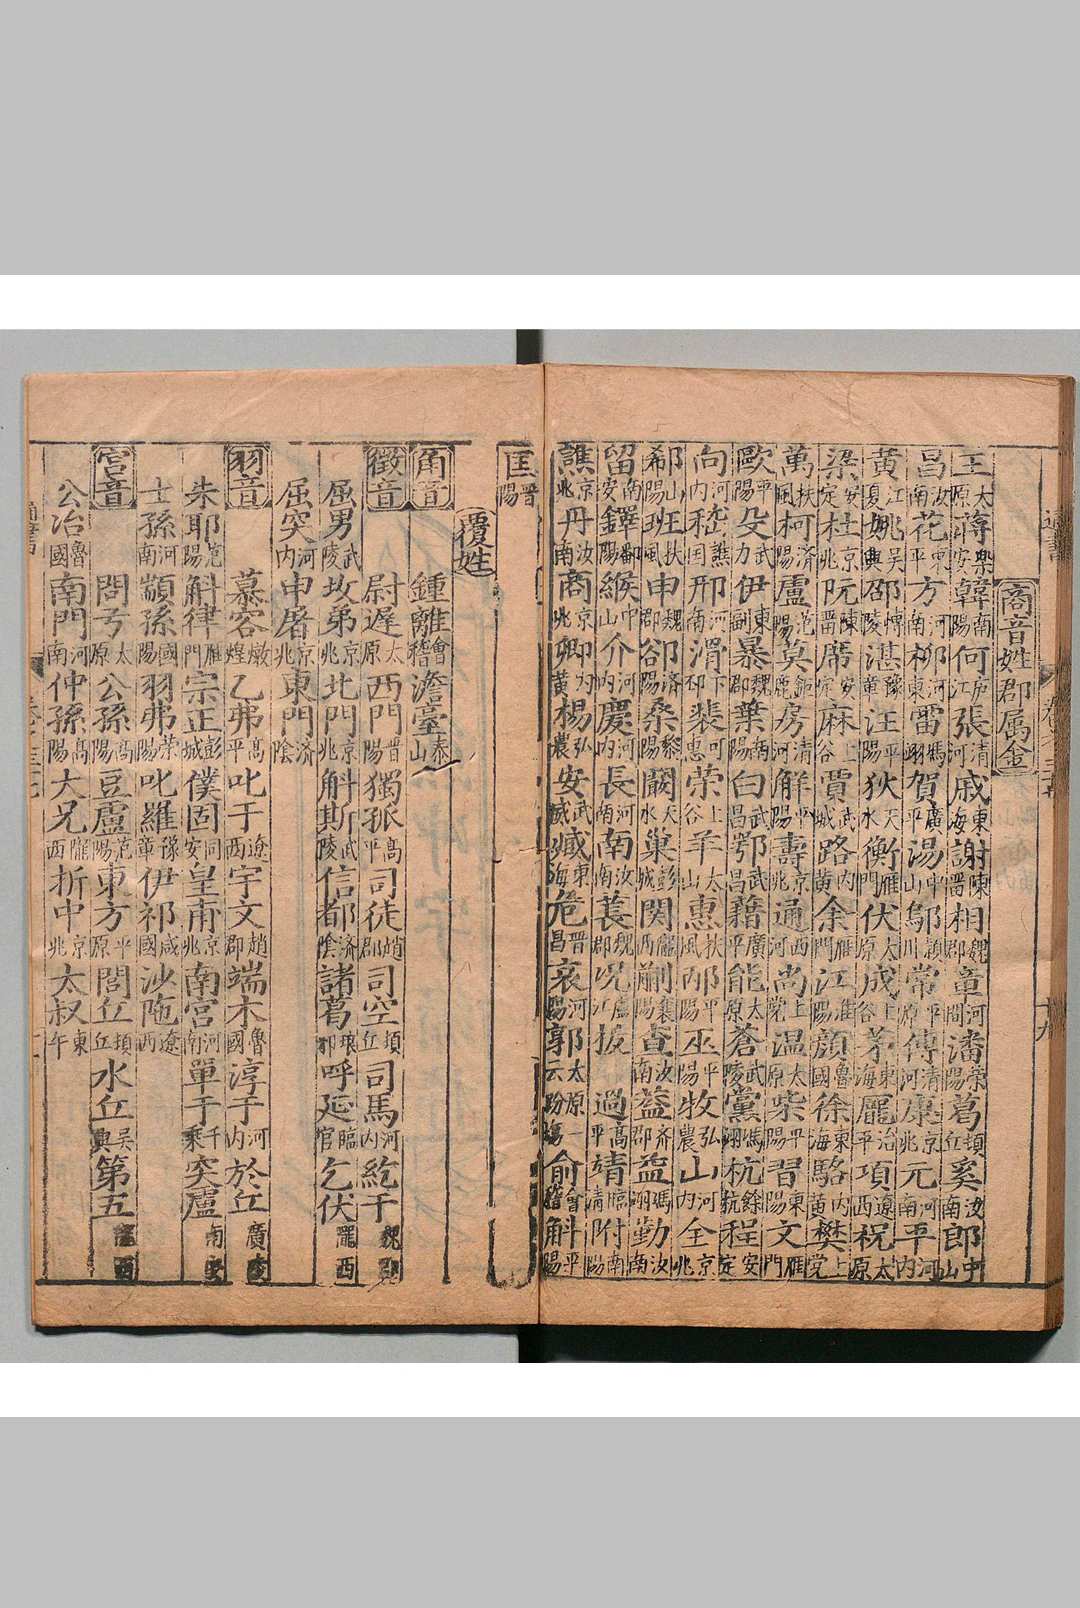 商音姓郡属金
王太原蔣樂安韓南陽何庐江張清河戚東海謝陳晉相魏郡章河間潘荣陽葛頓丘奚汝南郎中山
昌汝南花東平方河南柳河東雷馮翊賀廣平湯中山鄔潁川常平原傅清河康京兆元河南平河内
黄江夏姚吴興邵博陵湛豫章汪平陽狄天水衡雁門伏太原成上谷茅東海龎始平項遼西祝太原
梁安定杜京兆阮陳晋席安定麻上谷賈武城路内黄余雁門江淮陽顏魯國徐東海駱内黄樊上党
萬扶風柯済陽盧范陽莫鉅鹿房清河解平陽壽京兆通西河尚上黨温太原柴平陽習東陽文雁門
歐平陽殳武力伊東副暴魏郡葉南陽白南陽鄂武昌藉廣平能太原蒼武陵黨馮翊杭餘杭程安定
向河内嵇譙国邢河南滑下邳裴河東荣上谷羊太山惠扶風邴平陽巫平陽牧弘農山河内全京兆
郗山陽班扶風申魏郡郤済陽桑黎陽闞天水巢彭城関隴西蒯襄陽查汝南益郡益馮翊勤汝南
留南安鐸鄱陽緱中山介慶河内長河南南汝南養魏郡况廬江拔過高平靖臨清附南陽
譙京兆丹汝南商京兆卿内黄楊弘農安武威臧東海危晋昌哀河陽郭太原一云汾陽俞會稽斛平陽
匡晋陽
覆姓
角音 鍾離會稽澹臺泰山
徵音 尉遲太原西門晋陽獨孤高平司徒趙郡司空頓丘司馬河内紇于魏郡
屈男武陵坎弟京兆北門京兆斛斯武陵信都済陰諸葛琅邪呼延臨官乞伏隴西
屈突河内申屠京兆東門済陰
羽音 慕容燉煌乙弗高平叱于遼西宇文趙郡端木魯國淳于河内於丘廣陵
朱耶范陽斛律雁門宗正彭城僕固同安皇甫京兆南宮河南單于千乘突盧南安
士孫河南顓孫國陽羽弗荣陽叱羅豫章伊祁咸國沙陁遼西
宫音 問弓太原公孫高陽豆盧范陽東方平原閭丘頓丘水丘吴興第五隴西
公冶魯國南門河南仲孫高陽大兄隴西折中京兆太叔東午